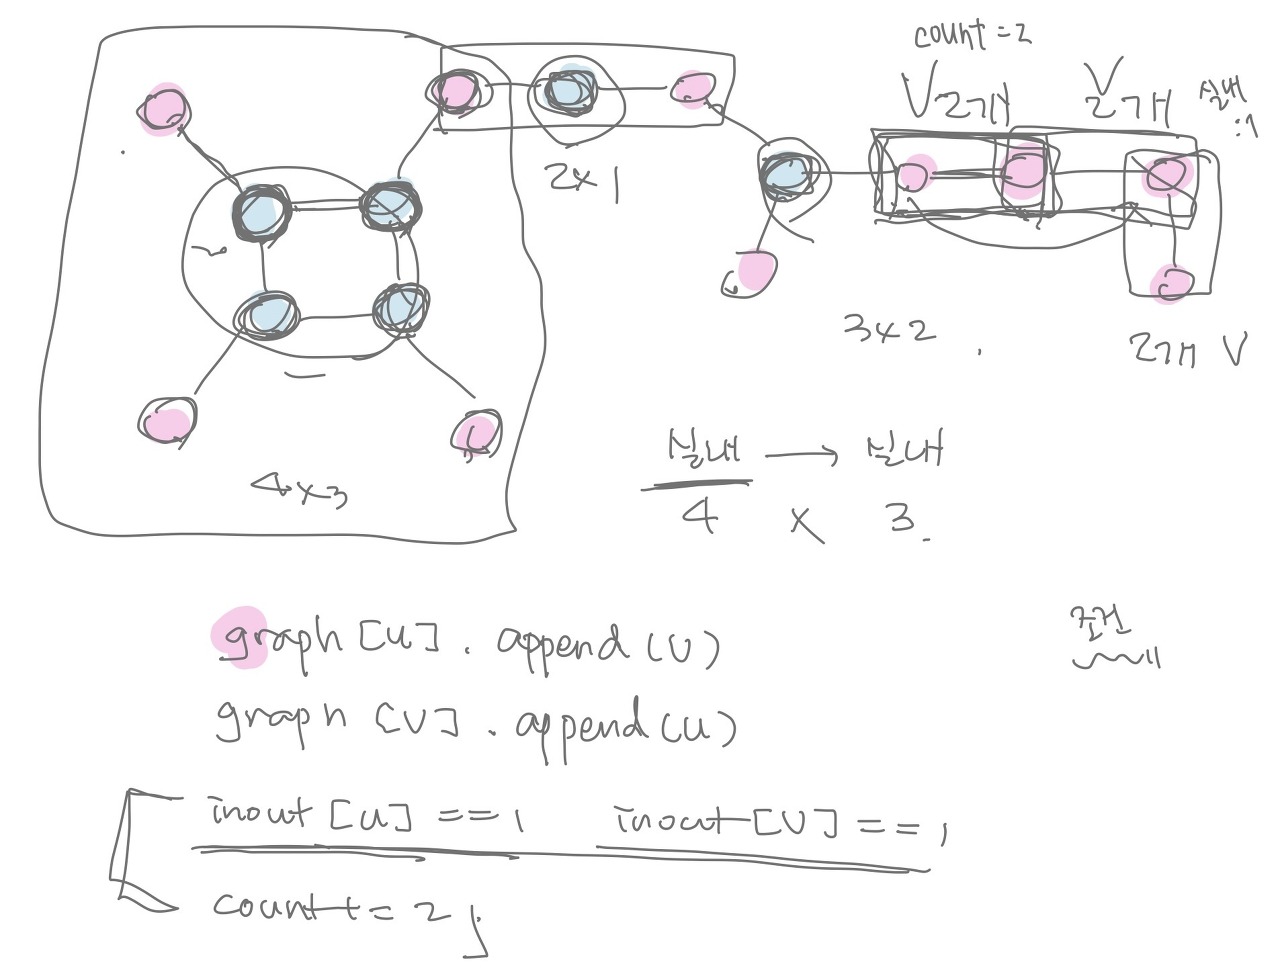 count = 2
V 2개
V 2개
실내 : 1
2 x 1
3 x 2
2개 V
4 x 3
실내 → 실내
4 x 3
조건
graph [u] . append (v)
graph [v] . append (u)
inout [u] == 1 inout [v] == 1
count += 2;